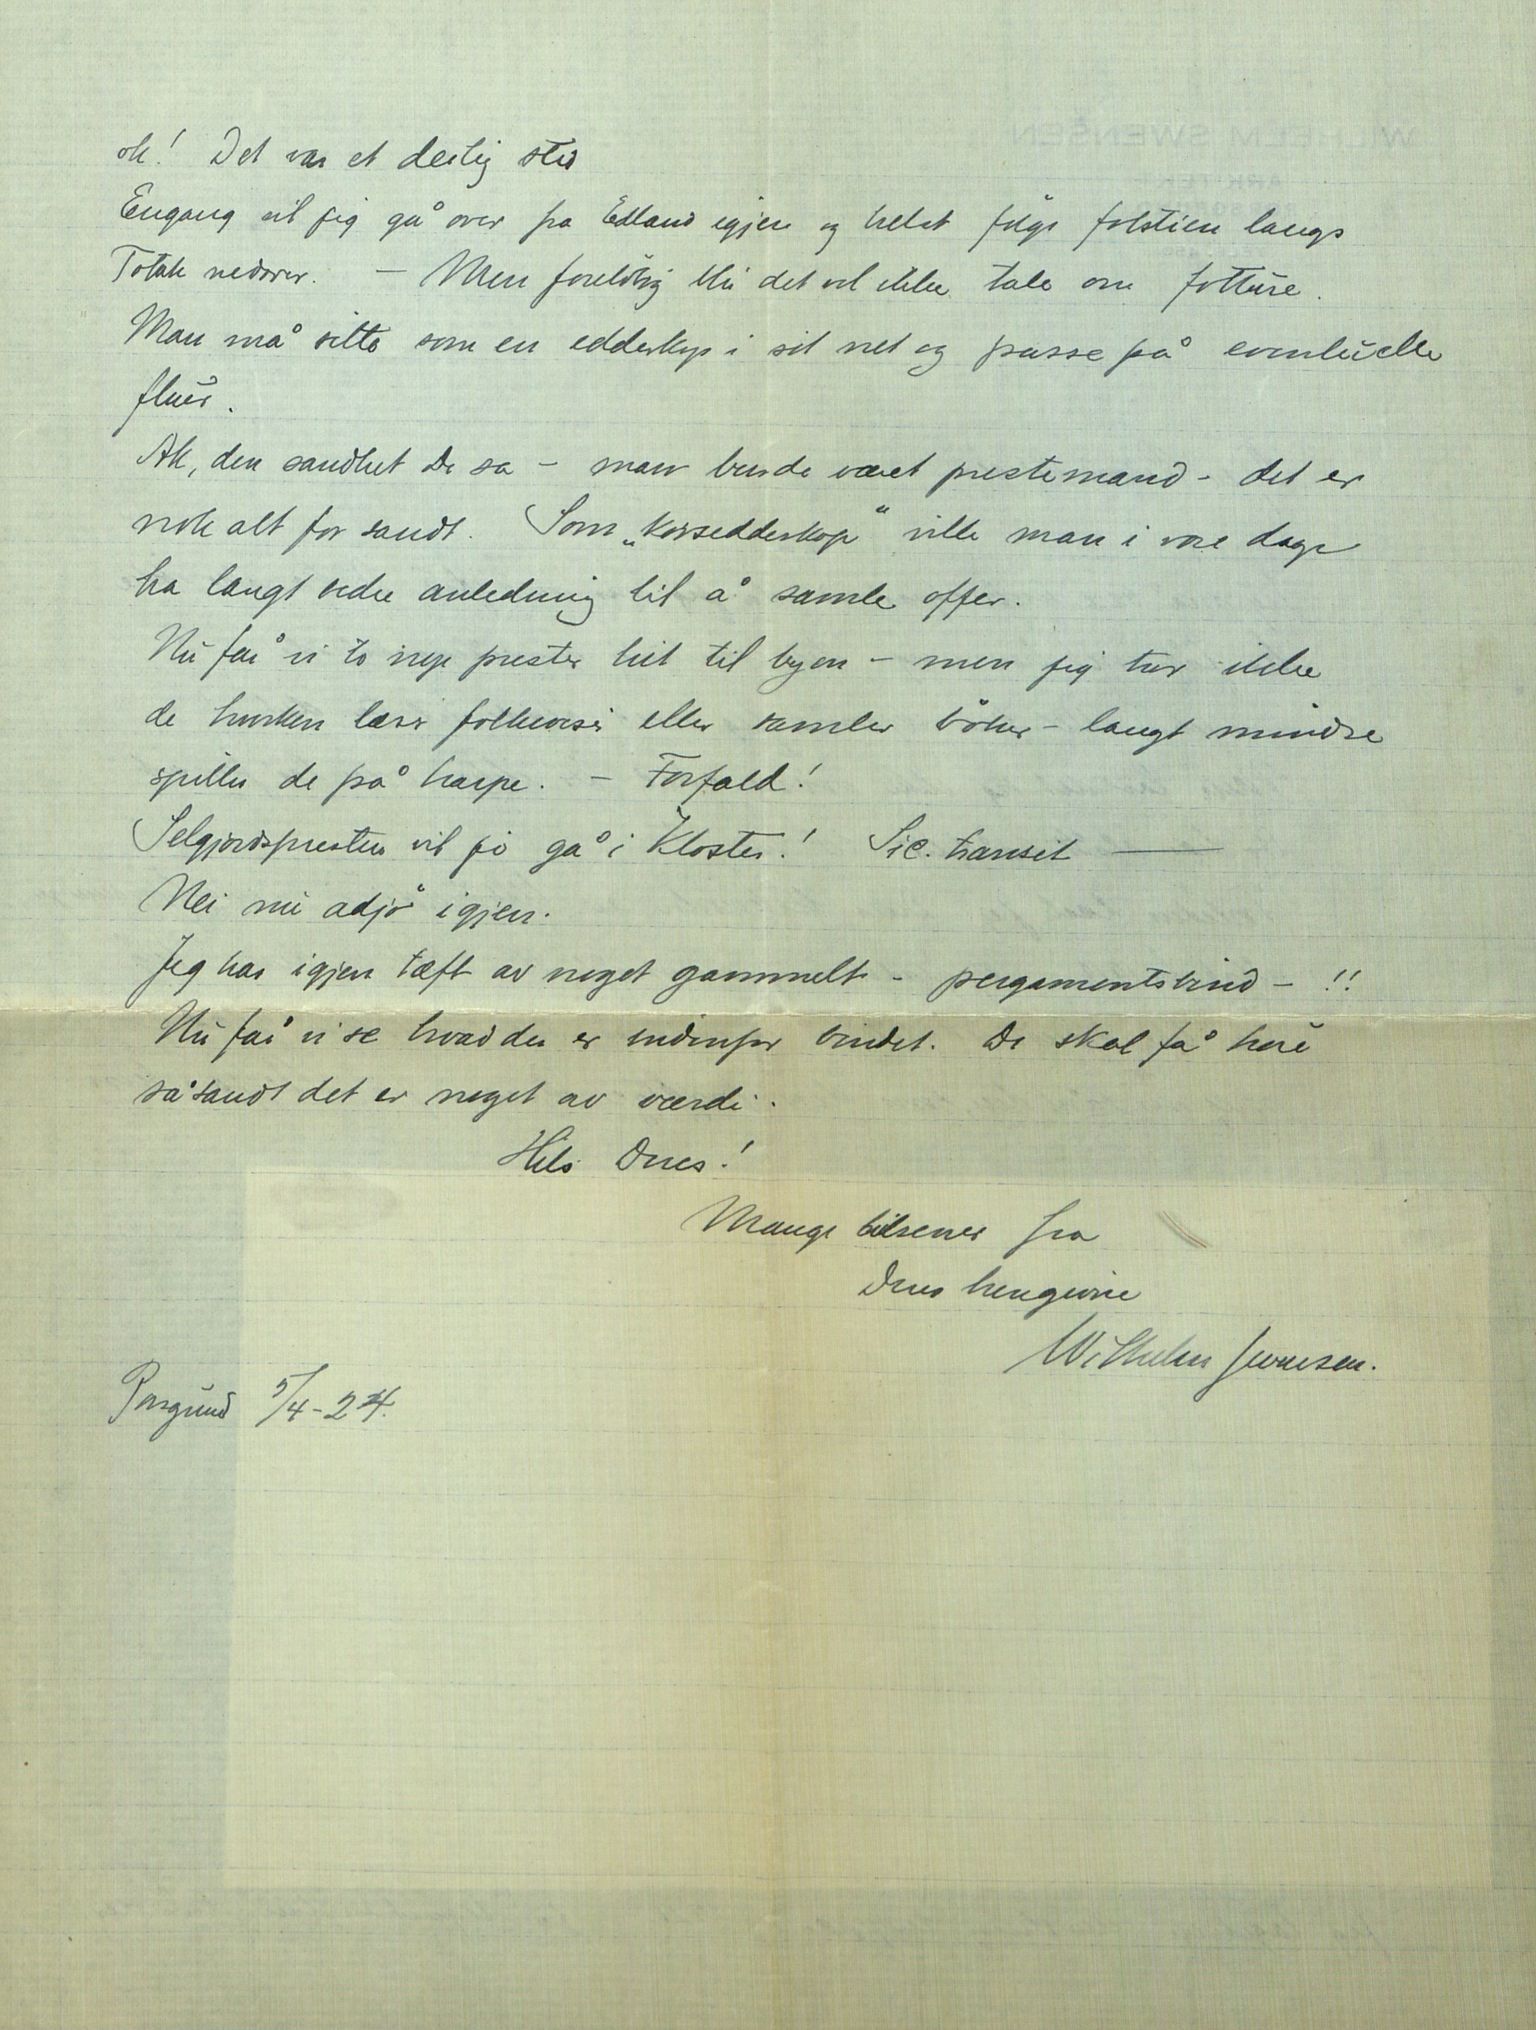 ok! Det var et deilig sted
Engang vil jeg gå over fra Edland igjen og helst følge fotstien langs
Totak nedover. — Men foreløbig blir det vel ikke tale om fotture.
Man må sitte som en edderkop i sit net og passe på eventuelle
fluer.
Ak, den sandhet De sa – man burde været prestemand – det er
nok alt for sandt. Som „korsedderkop“ ville man i vore dage
ha langt bedre anledning til å samle offer.
Nu får vi to nye prester hit til byen – men jeg tror ikke
de hverken læser folkeviser eller samler bøker – langt mindre
spiller de på harpe. — Forfald!
Selgjordspresten vil jo gå i Kloster! Sic. transit ——
Nei nu adjø igjen.
Jeg har igjen tæft av noget gammelt – pergamentsbind – !!
Nu får vi se hvad der er indenfor bindet. De skal få høre
såsandt det er noget av værdi.
Hils Deres!
Mange hilsener fra
Deres hengivne
Wilhelm Swensen.
Porsgrund 5/4-24.
WILHELM SWENSEN
ARKITEKT